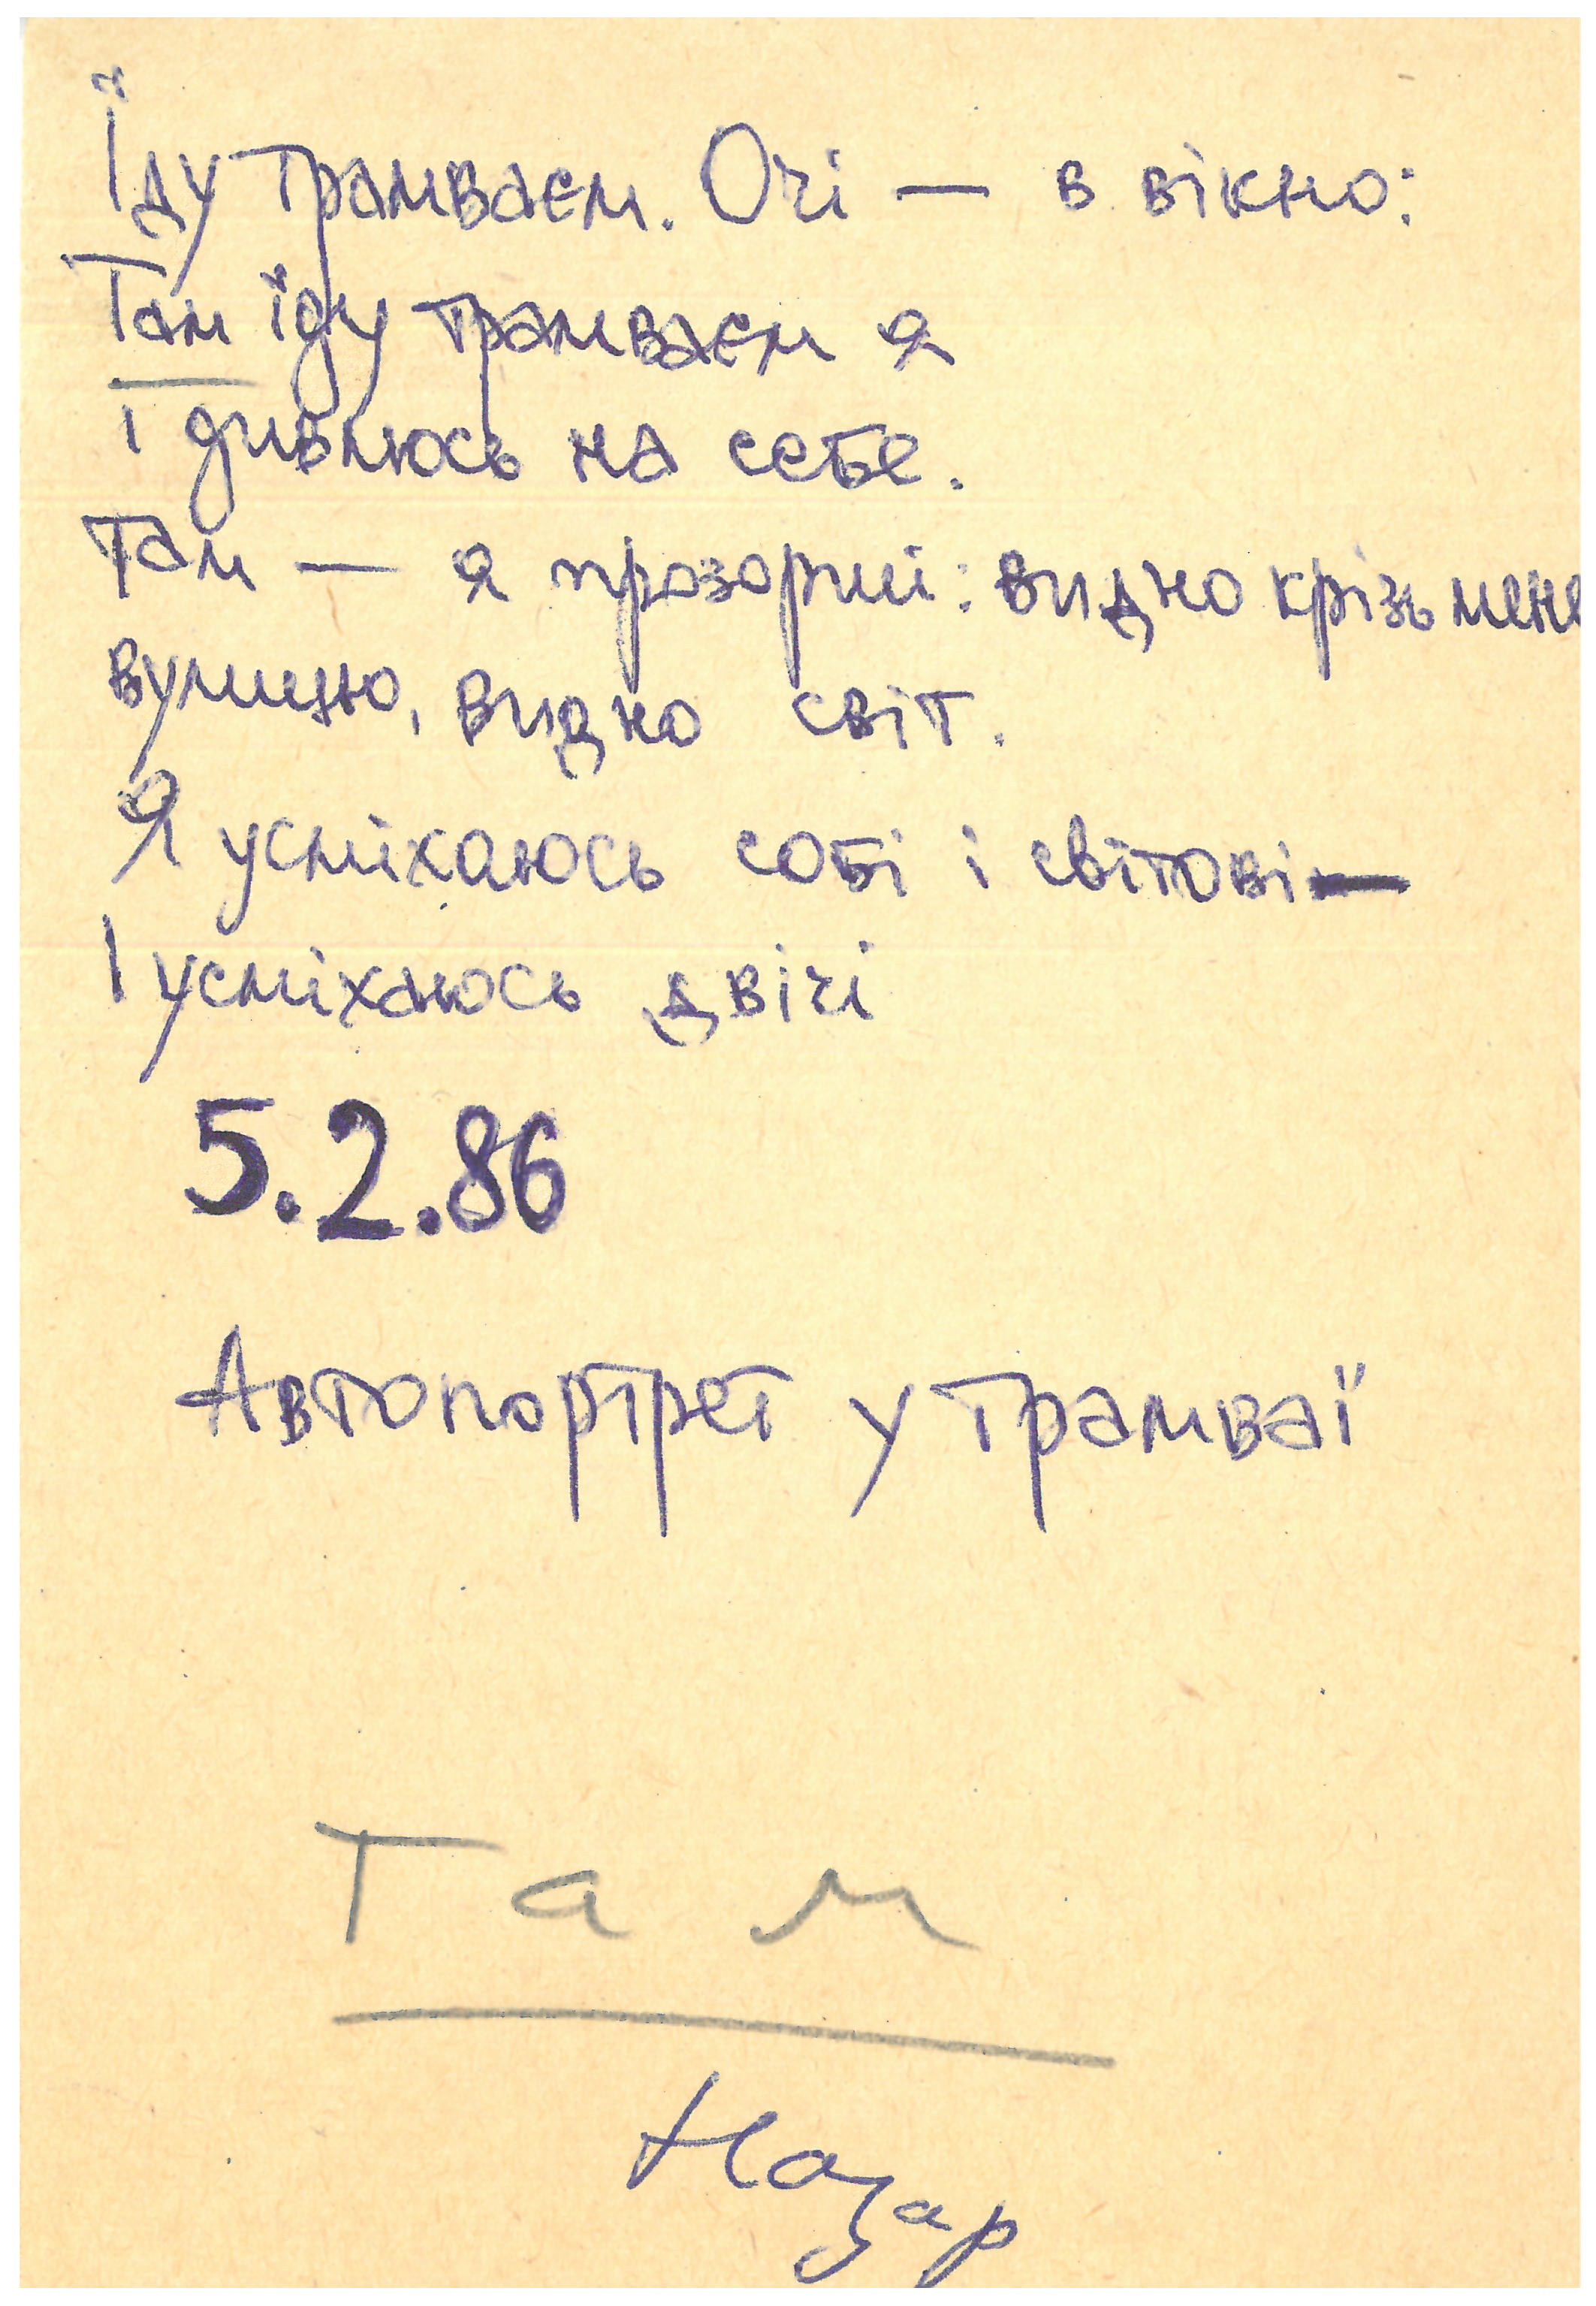 Їду трамваєм. Очі — в вікно:
Там їду трамваєм я
І дивлюсь на себе.
Там — я прозорий: видно крізь мене
вулицю, видно світ.
Я усміхаюсь собі і світові —
І усміхаюсь двічі
5.2.86
Автопортрет у трамваї
Там
Назар